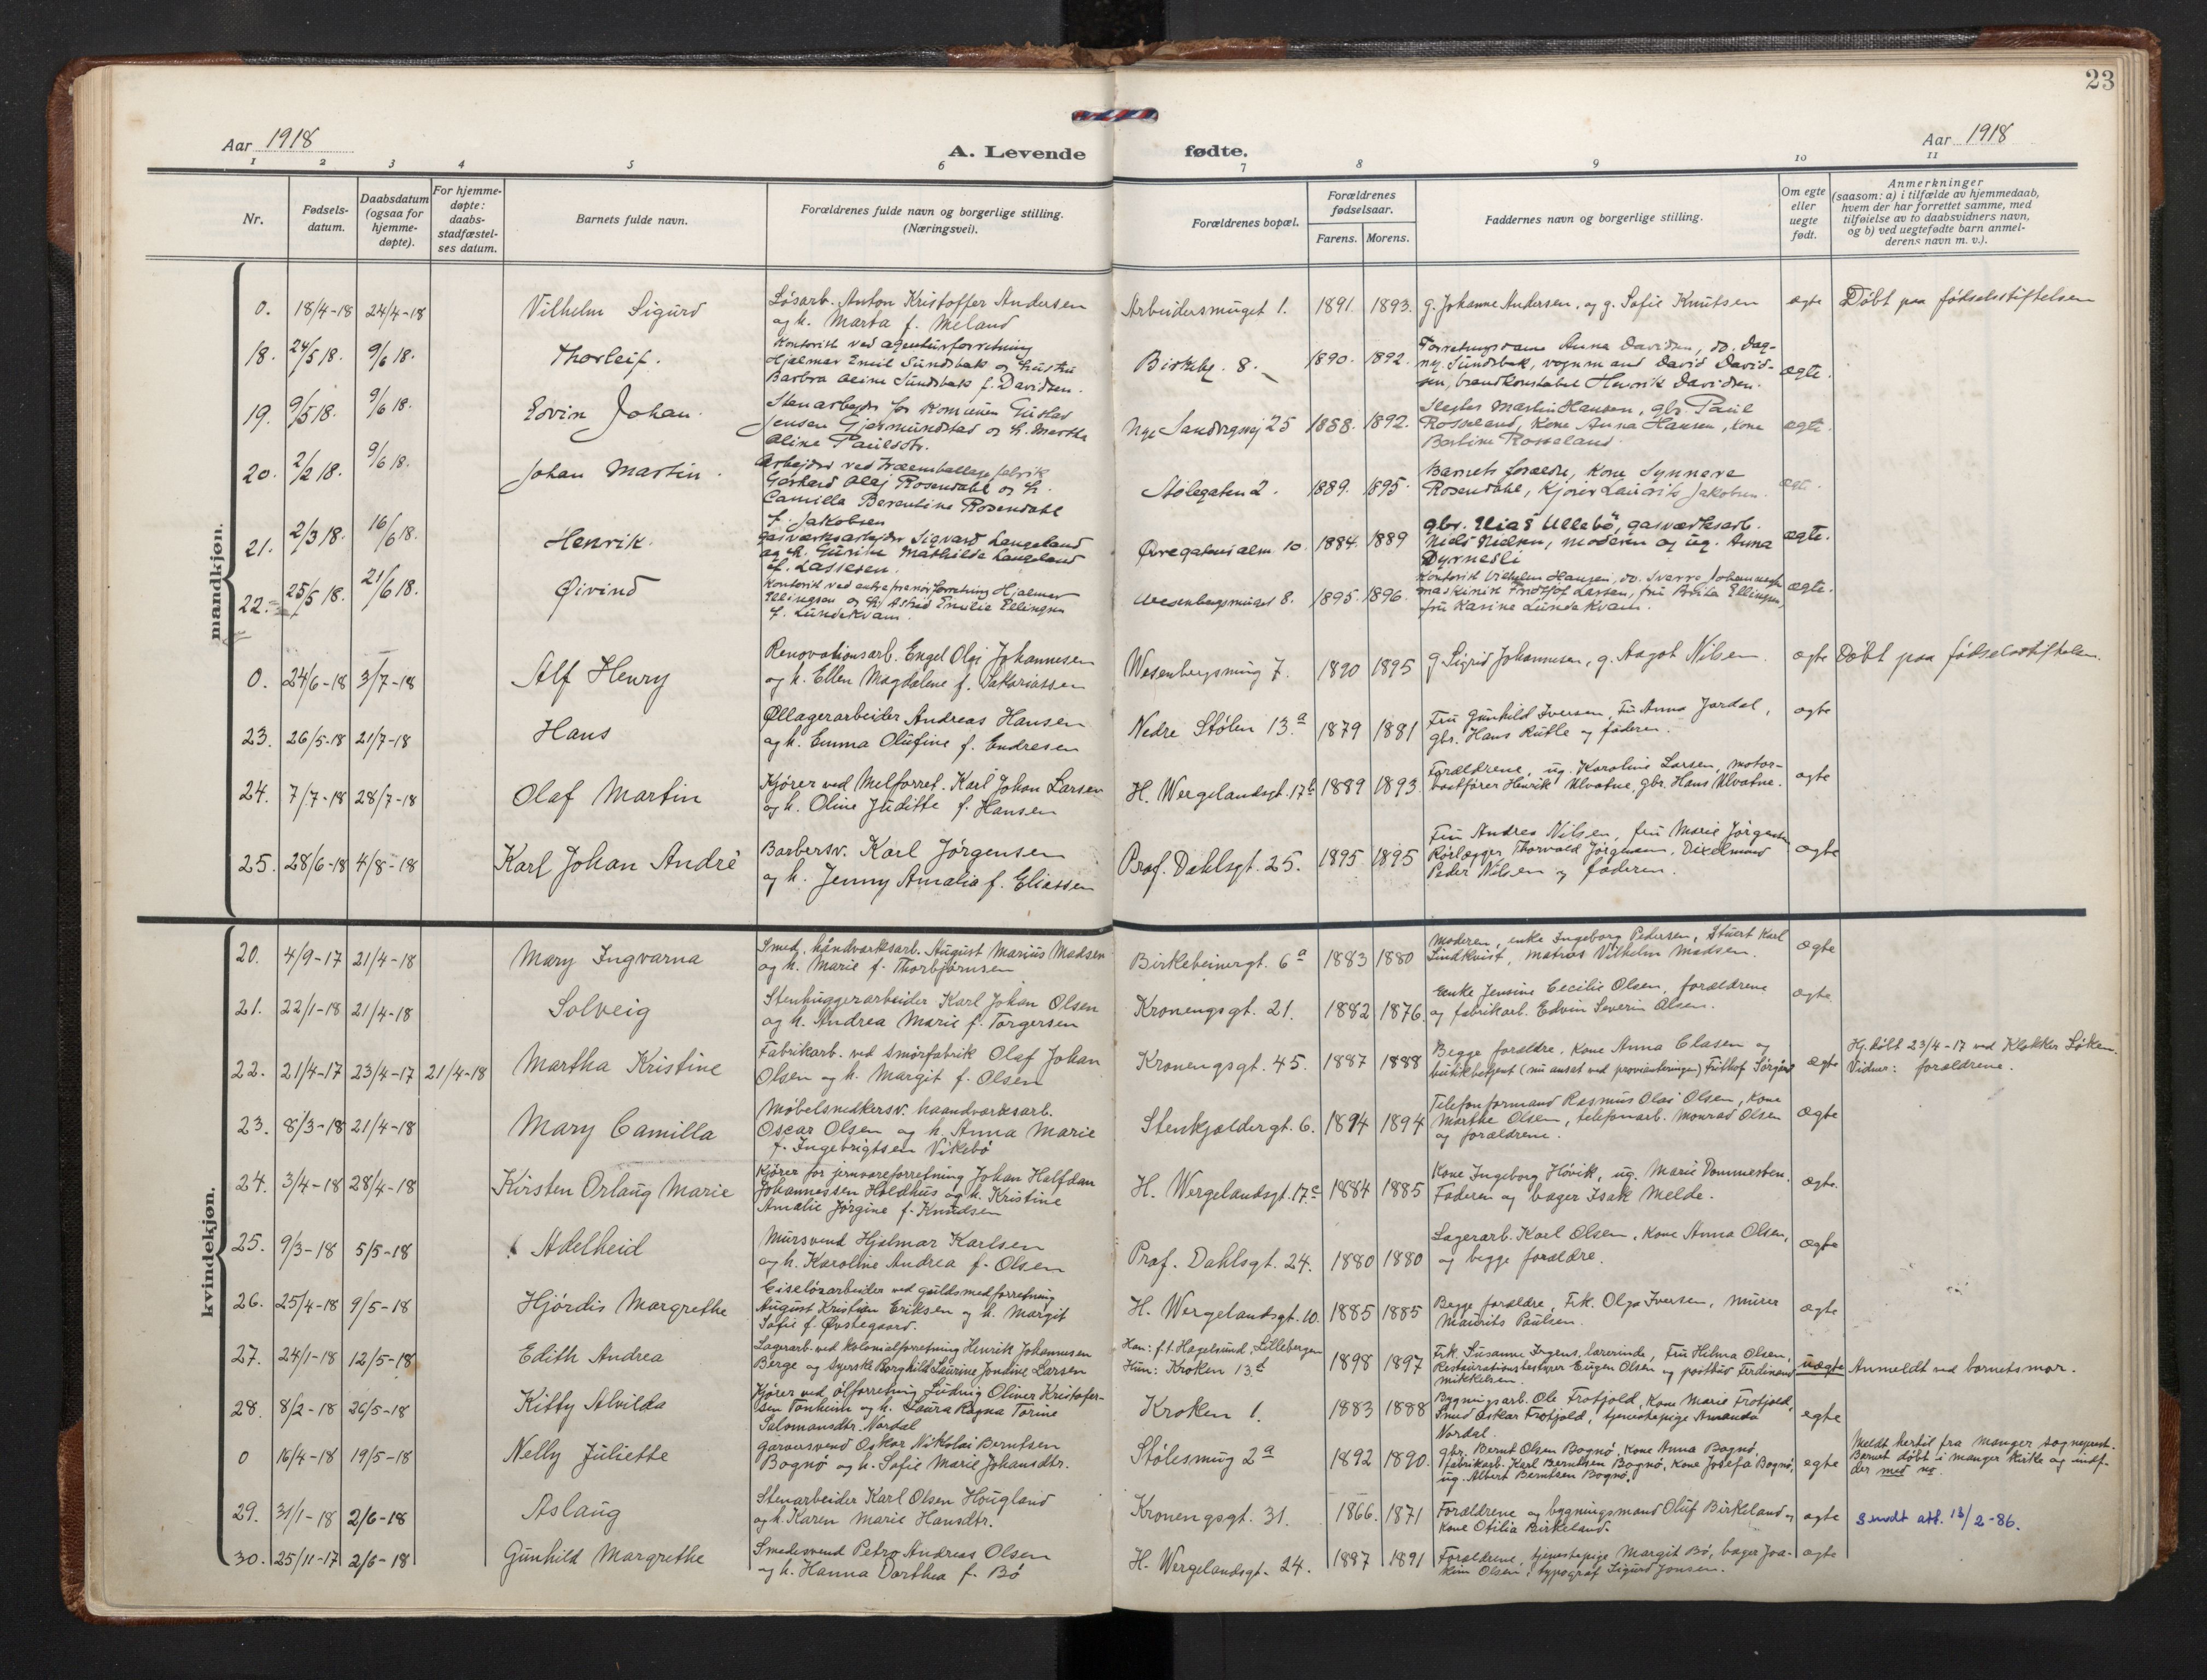 23
Aar 1918
A. Levende
fødte.
Aar 1918
1 2 3 4 5 6 7 8 9 10 11
Nr.
Fødsels-
datum.
Daabsdatum
(ogsaa for
hjemme-
døpte).
For hjemme-
døpte:
daabs-
stadfæstel-
ses datum.
Barnets fulde navn.
Forældrenes fulde navn og borgerlige stilling.
(Næringsvei).
Forældrenes bopæl.
Forældrenes
fødselsaar.
Farens. Morens.
Faddernes navn og borgerlige stilling.
Om egte
eller
uegte
født.
Anmerkninger
(saasom: a) i tilfælde av hjemmedaab,
hvem der har forrettet samme, med
tilføielse av to daabsvidners navn,
og b) ved uegtefødte barn anmel-
derens navn m. v.).
mandkjøn.
0. 18/4-18 24/4-18 Vilhelm Sigurd
Løsarb. Anton Kristoffer Andersen
og h. Marta f. Meland
Arbeidersmuget 1. 1891. 1893. g. Johanne Andersen, og g. Sofie Knutsen ægte Døbt paa fødselsstiftelsen
18. 24/5 18. 9/6 18. Thorleif.
Kontorist ved agenturforretning
Hjalmar Emil Sundsbak og hustru
Barbra Aline Sundsbak f. Davidsen.
Birkeby. 8. 1890. 1892.
Forretningsdame Anna Davidsen, do. Dag-
ny Sundsbak, vognmand David David-
sen, brandkonstabel Henrik Davidsen.
ægte.
19. 9/5 18. 9/6 18. Edvin Johan.
Stenarbejder for Komunen Gustav
Jensen Gjermundstad og h. Martha
Aline Paulsdtr.
Nye Sandviksvej 25 1888. 1892.
Slagter Martin Hansen, gbr. Paul
Rosseland, Kone Anna Hansen, kone
Bertine Rosseland.
ægte.
20. 2/2 18. 9/6 18. Johan Martin.
Arbejder ved Træemballage fabrik
Gerhard Olaj Rosendahl og h.
Camilla Berentine Rosendahl
f. Jakobsen
Stølegaten 2. 1889. 1895.
Barnets foræld., Kone Synnøve
Rosendahl, Kjører Laurits Jakobsen.
ægte.
21. 2/3 18. 16/6 18. Henrik.
Gasværksarbejder Sigvard Langeland
og h. Gurine Mathilde Langeland
f. Lassesen.
Øvregatens alm. 10 1884. 1889
gbr. Elias Ullebø, gasværksarb.
Niels Nielsen, moderen og ug. Anna
Dyrnesli
ægte.
22. 25/5 18. 21/6 18. Øivind
Kontorist ved entreprenørforretning Hjalmar
Ellingsen og h. Astrid Emilie Ellingsen
f. Lundekvam.
Wesenbergsmuget 8. 1895. 1896.
Kontorist Vilhelm Hansen, do. Sverre Johannesen
maskinist Fridtjof Larsen, fru Berta Ellingsen,
fru Karine Lundekvam.
ægte.
0. 24/6-18 3/7-18 Alf Henry
Renovationsarb. Engel Olai Johannesen
og h. Ellen Magdalene f. Sakariassen
Wesenbergsmug 7. 1890 1895 g. Sigrid Johannesen, g. Aagot Nilsen. ægte Døbt paa fødselsstiftelsen.
23. 26/5-18 21/7-18 Hans
Øllagerarbeider Andreas Hansen
og h. Emma Olufine f. Endresen
Nedre Stølen 13.a 1879 1881
Fru Gunhild Iversen, Fru Anna Jordal,
gbr. Hans Rutle og faderen.
ægte
24. 7/7-18 28/7-18 Olaf Martin
Kjører ved Melforret. Karl Johan Larsen
og h. Oline Juditte f. Hansen
H. Wergelandsgt. 17b 1889 1893
Forældrene, ug. Karoline Larsen, motor-
baatfører Henrik Ulvatne, gbr. Hans Ulvatne.
ægte
25. 28/6-18 4/8-18 Karl Johan André
Barbersv. Karl Jørgensen
og h. Jenny Amalia f. Eliassen
Prof. Dahlsgt. 25. 1895 1895
Fru Andrea Nilsen, fru Marie Jørgensen
Rørlægger Thorvald Jørgensen, Dixelmand
Peder Nilsen og faderen.
ægte
kvindekjøn.
20. 4/9-17 21/4-18 Mary Ingvarna
Smed, håndværksarb. August Marius Madsen
og h. Marie f. Thorbjørnsen
Birkebeinergt. 6a 1883 1880
Moderen, enke Ingeborg Pedersen, Stuert Karl
Lindkvist, matros Vilhelm Madsen.
ægte
21. 22/1-18 21/4-18 Solveig
Stenhuggerarbeider Karl Johan Olsen
og h. Andrea Marie f. Torgersen
Kronengsgt. 21. 1882 1876.
Enke Jensine Cecilie Olsen, forældrene
og fabrikarb. Edvin Severin Olsen.
ægte
22. 21/4-17 23/4-17 21/4-18 Martha Kristine
Fabrikarb. ved smørfabrik Olaf Johan
Olsen og h. Margit f. Olsen
Kronengsgt. 45. 1887 1888
Begge forældre, Kone Anna Clasen og
butikbetjent (nu ansat ved provianteringen) Fritjof
ægte
Hj. døbt 23/4-17 ved Klokker Løken.
Vidner: forældrene.
23. 8/3-18 21/4-18 Mary Camilla
Møbelsnedkersv. haandværksarb.
Oscar Olsen og h. Anna Marie
f. Ingebrigtsen Vikebø
Stenkjeldergt. 6. 1894 1894
Telefonformand Rasmus Olai Olsen, Kone
Marthe Olsen, telefonarb. Monrad Olsen
og forældrene.
ægte
24. 3/4-18 28/4-18 Kirsten Orlaug Marie
Kjører for jernvareforretning Johan Halfdan
Johannessen Holdhus og h. Kristine
Amalie Jørgine f. Knudsen
H. Wergelandsgt. 17.c 1884 1885
Kone Ingeborg Høvik, ug. Marie Dommesten.
Faderen og bager Isak Melde.
ægte.
25. 9/3-18 5/5-18 Adelheid
Mursvend Hjalmar Karlsen
og h. Karoline Andrea f. Olsen
Prof. Dahlsgt. 24. 1880 1880
Lagerarb. Karl Olsen, Kone Anna Olsen,
og begge forældre.
ægte
26. 25/4-18 9/5-18 Hjørdis Margrethe
Ciselørarbeider ved guldsmedforretning
August Kristian Eriksen og h. Margit
Sofie f. Øvstegaard.
H. Wergelandsgt. 10. 1885 1885
Begge forældre, Frk. Olga Iversen, murer
Maurits Paulsen.
ægte
27. 24/1-18 12/5-18 Edith Andrea
Lagerarb. ved kolonialforretning Henrik Johannesen
Berge og syerske Borghild Laurine Jondine Larsen
Han: f.t. Hagelsund, Lillebergen
Hun: Kroken 13.d
1898 1897
Frk. Susanne Irgens, lærerinde, Fru Hilma Olsen,
Restaurationsbestyrer Eugen Olsen og postbud Ferdinand
Mikkelsen.
uægte Anmeldt ved barnets mor.
28. 8/2-18 26/5-18 Kitty Alvilda
Kjører ved ølforretning Ludvig Oliver Kristofer-
sen Tonheim og h. Laura Ragna Torine
Salomonsdtr. Nordal
Kroken 1. 1883 1888
Bygningsarb. Ole Frotjold, Kone Marie Frotjold,
Smed Oskar Frotjold, tjenestepige Amanda
Nordal.
egte
0 16/4-18 19/5-18 Nelly Juliette
Garversvend Oskar Nikolai Berntsen
Bognø og h. Sofie Marie Johansdtr.
Stølesmug 2a 1892 1890.
gbr. Bernt Olsen Bognø, Kone Anna Bognø,
fabrikarb. Karl Berntsen Bognø, Kone Josefa Bognø,
ug. Albert Berntsen Bognø.
egte
Meldt hertil fra Manger sogneprest.
Barnet døbt i Manger kirke og indf.
der med nr.
29. 31/1-18 2/6-18 Aslaug
Stenarbeider Karl Olsen Hougland
og h. Karen Marie Hansdtr.
Kronengsgt. 31. 1866. 1871
Forældrene og bygningsmand Oluf Birkeland og
Kone Otilia Birkeland.
ægte Sendt att. 13/2-86.
30. 25/11-17 2/6-18 Gunhild Margrethe
Smedesvend Petro Andreas Olsen
og h. Hanna Dorthea f. Bø
H. Wergelandsgt. 24. 1887 1891
Forældrene, tjenestepige Margit Bø, bager Joa-
kim Olsen, typograf Sigurd Jonsen.
ægte